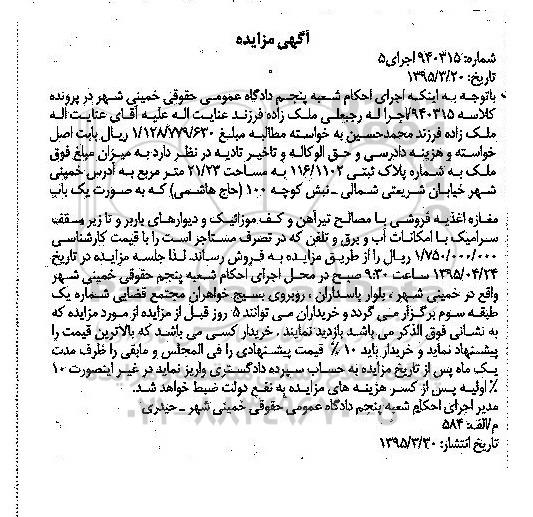 آگهی مزایده
شماره: ۹۴۰۳۱۵ اجرای ۵
تاریخ: ۱۳۹۵/۳/۲۰
باتوجه به اینکه اجرای احکام شعبه پنجم دادگاه عمومی حقوقی خمینی شهر در پرونده
کلاسه ۹۴۰۳۱۵/اجرا له رجبعلی ملک زاده فرزند عنایت اله علیه آقای عنایت اله
ملک زاده فرزند محمدحسین به خواسته مطالبه مبلغ ۱/۱۲۸/۷۷۹/۶۳۰ ریال بابت اصل
خواسته و هزینه دادرسی و حق الوکاله و تاخیر تادیه در نظر دارد به میزان مبلغ فوق
ملک به شماره پلاک ثبتی ۱۱۶/۱۱۰۲ به مساحت ۲۱/۲۳ متر مربع به آدرس خمینی
شهر خیابان شریعتی شمالی - نبش کوچه ۱۰۰ (حاج هاشمی) که به صورت یک باب
مغازه اغذیه فروشی با مصالح تیرآهن و کف موزائیک و دیوارهای باربر و تا زیر سقف
سرامیک با امکانات آب و برق و تلفن که در تصرف مستاجر است را با قیمت کارشناسی
۱/۷۵۰/۰۰۰/۰۰۰ ریال را از طریق مزایده به فروش رساند. لذا جلسه مزایده در تاریخ
۱۳۹۵/۰۴/۲۴ ساعت ۹:۳۰ صبح در محل اجرای احکام شعبه پنجم حقوقی خمینی شهر
واقع در خمینی شهر ، بلوار پاسداران ، روبروی بسیج خواهران مجتمع قضایی شماره یک
طبقه سوم برگزار می گردد و خریداران می توانند ۵ روز قبل از مزایده از مورد مزایده که
به نشانی فوق الذکر می باشد بازدید نمایند . خریدار کسی می باشد که بالاترین قیمت را
پیشنهاد نماید و خریدار باید ۱۰ ٪ قیمت پیشنهادی را فی المجلس و مابقی را ظرف مدت
یک ماه پس از تاریخ مزایده به حساب سپرده دادگستری واریز نماید در غیر اینصورت ۱۰
٪ اولیه پس از کسر هزینه های مزایده به نفع دولت ضبط خواهد شد.
مدیر اجرای احکام شعبه پنجم دادگاه عمومی حقوقی خمینی شهر - حیدری
م/الف: ۵۸۴
تاریخ انتشار: ۱۳۹۵/۳/۳۰